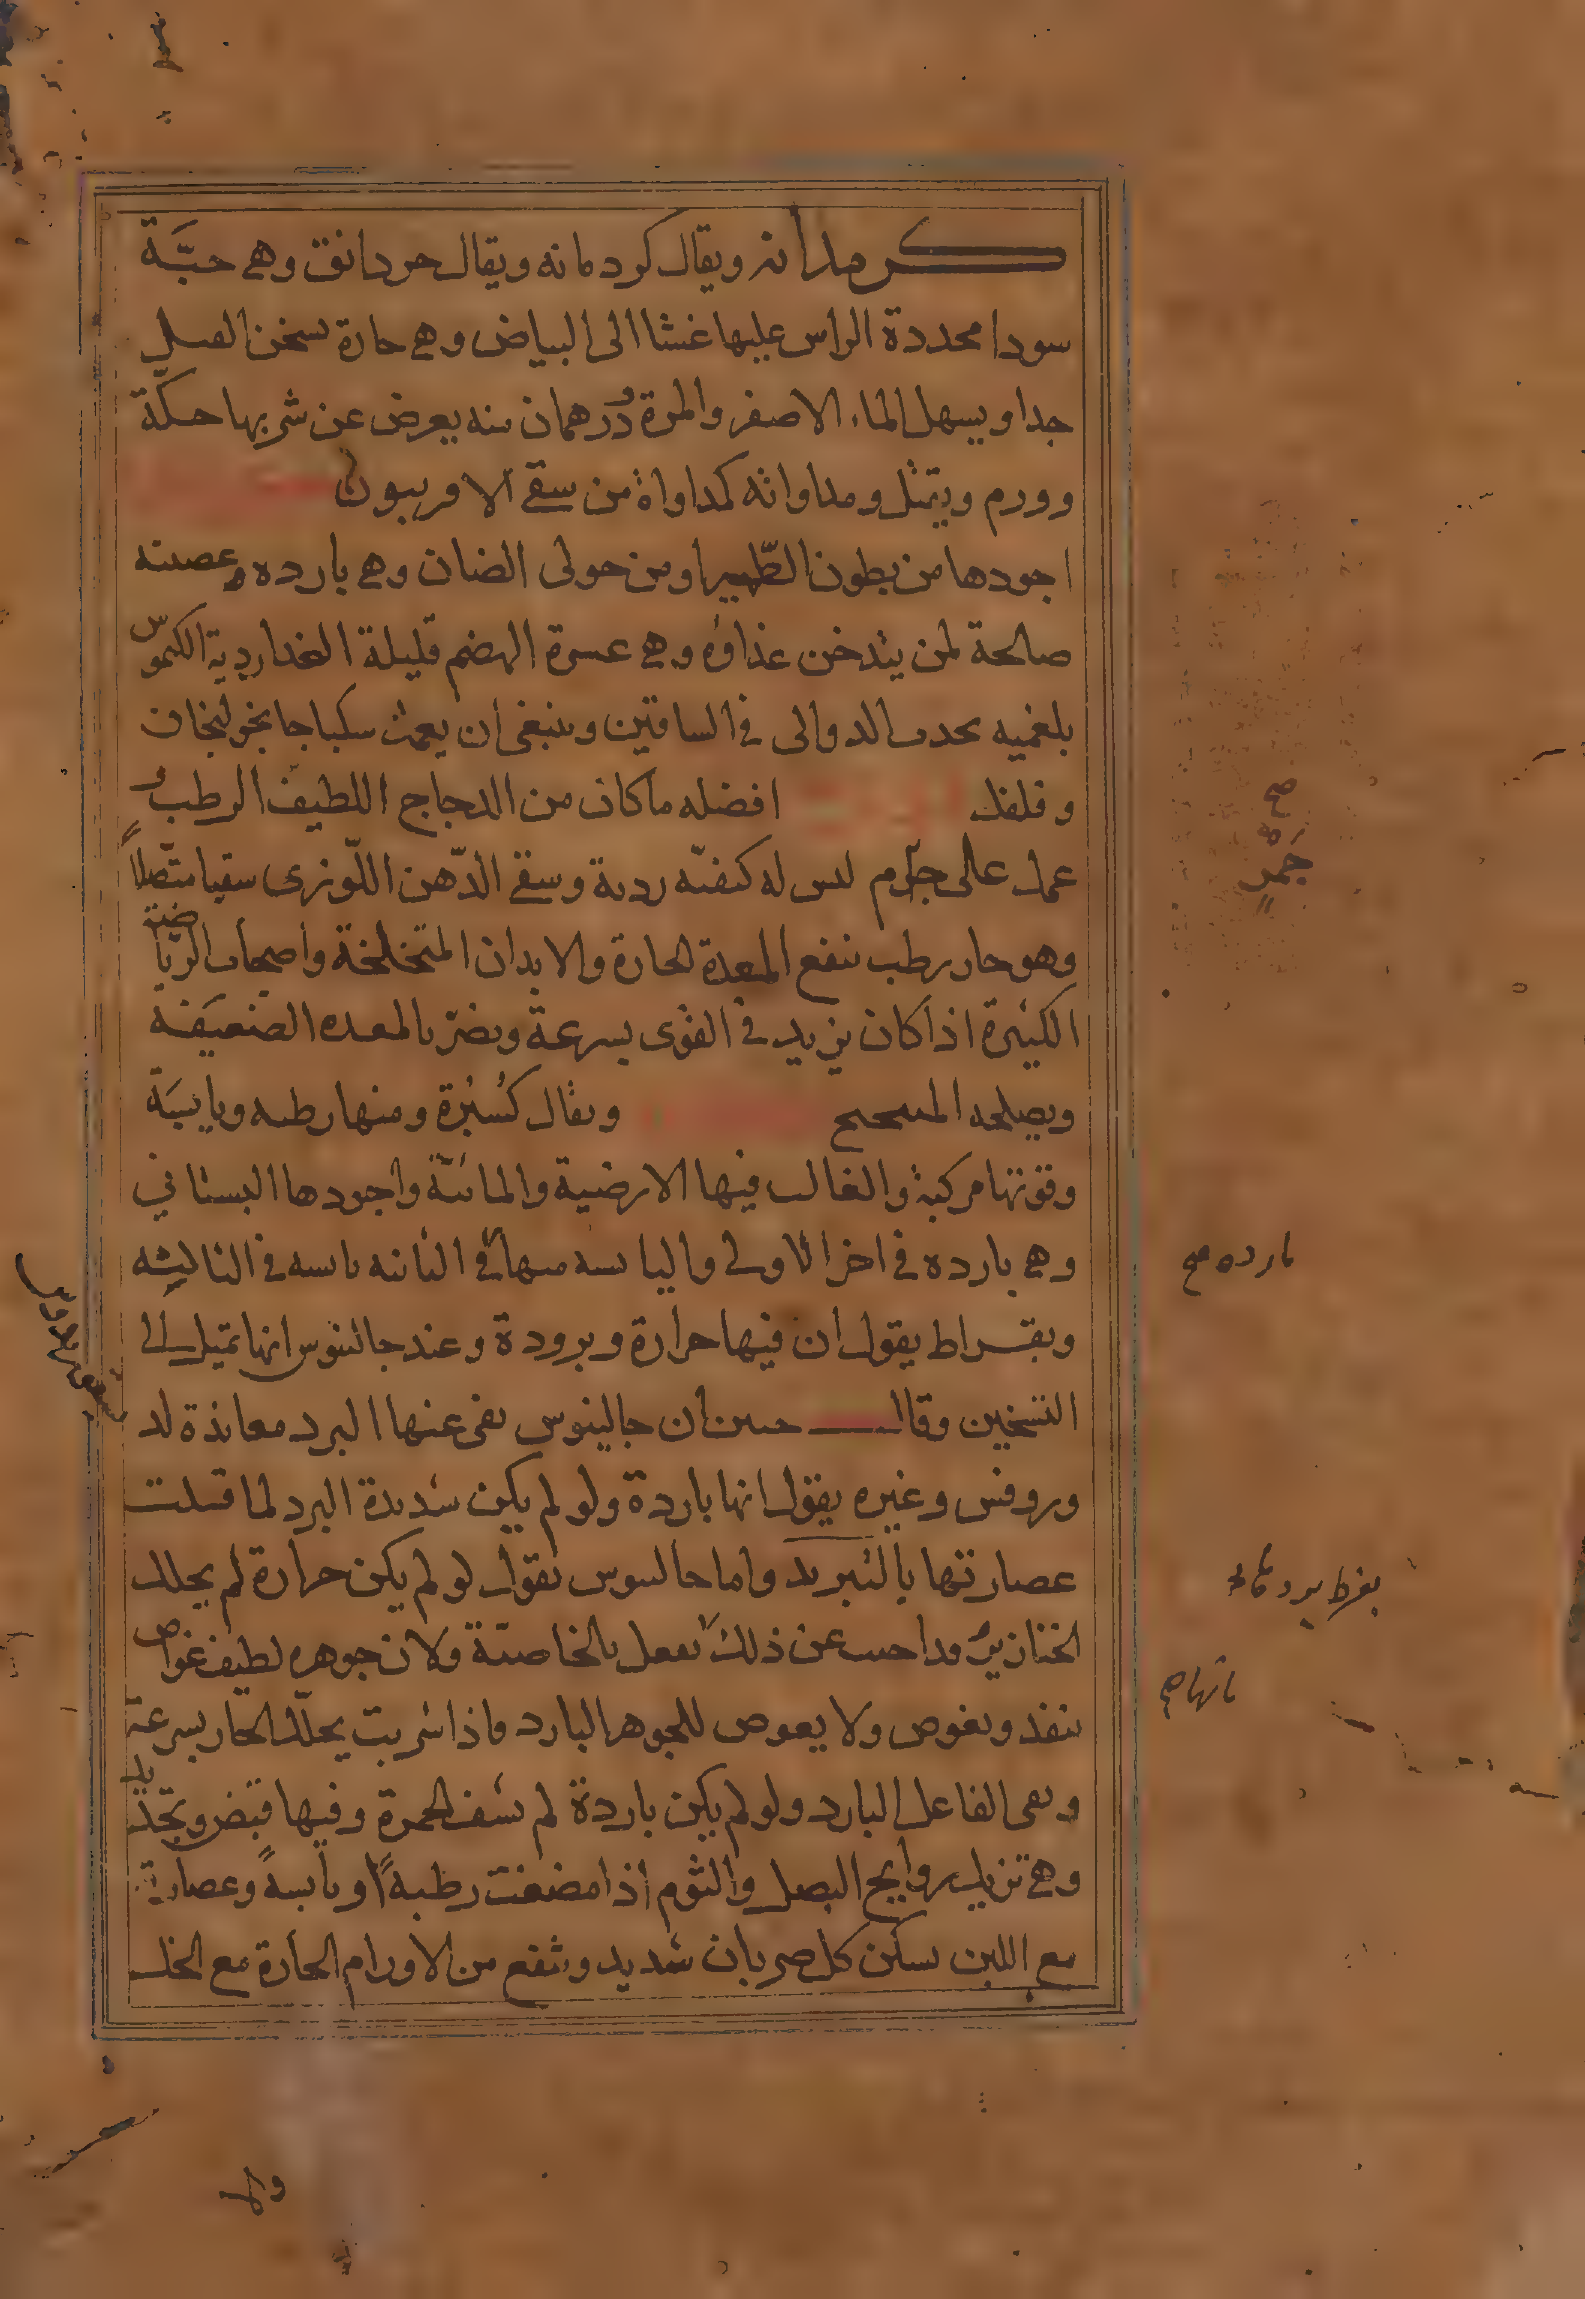 كرمدانه ويقال كردمانه ويقال جردانق وهي حبَّة
سودا محددة الراس عليها غشا الى البياض وهي حارة تسخن
جدا ويسهل الماء الاصفر والمرة درهمان منه يعرض عن شربها حكّة
وورم ومداواته كمداواة من سقي الافربيون
اجودها من بطون الطير او من حولى الضان وهي بارده عصبيه
صالحة لمن يتدخن غذاؤه وهي عسرة الهضم قليلة الغذا ردية الكيموس
بلغميه يحدث الدوالى في الساقين وينبغى ان يعمل سكباجا بخولنجان
وفلفل افضله ماكان من الدجاج اللطيف الرطب
عمل على جرم ليس له كيفيّه ردية وسقي الدّهن اللّوزى سقيا متصلاً
وهو حار رطب ينفع المعدة الحارة والابدان المتخلخة واصحاب الرّياضة
الكثيرة اذا كان يزيد في القوى بسرعة ويضرّ بالمعده الضعيفة
ويصلحه ويقال كُسبُرة ومنها رطبه ويابسَة
وقوتها مركبة والغالب فيها الارضية والمائيّة واجودها البستاني
وهي بارده في اخر الاولى واليابسه منها في الثانيه يابسه في الثالثه
وبقراط يقول ان فيها حرارة وبرودة وعند جالينوس انها تميل الى
التسخين وقال حنين ان جالينوس نفى عنها البرد معاندة لد
وروفس وغيره يقول انها باردة ولو لم يكن شديدة البرد لما قتلت
عصارتها بالتبريد واما جالينوس يقول لو لم يكن حرارة لم يحلل
الخنازير وقد اجيب عن ذلك يفعل بالخاصيّة ولان جوهره لطيف غواص
ينفذ ويغوص ولا يغوص للجوهر البارد واذا شربت يحلّل الحار بسرعة
وبقى الفاعل البارد ولو لم يكن باردة لم تشف الحمرة وفيها قبض
وهي تزيل روايح البصل والثوم اذا مضغت رطبةً او يابسةً وعصارته
مع اللبن يسكن كل ضربان شديد وينفع من الاورام الحارة مع الخل
صح
بارده صح
صح